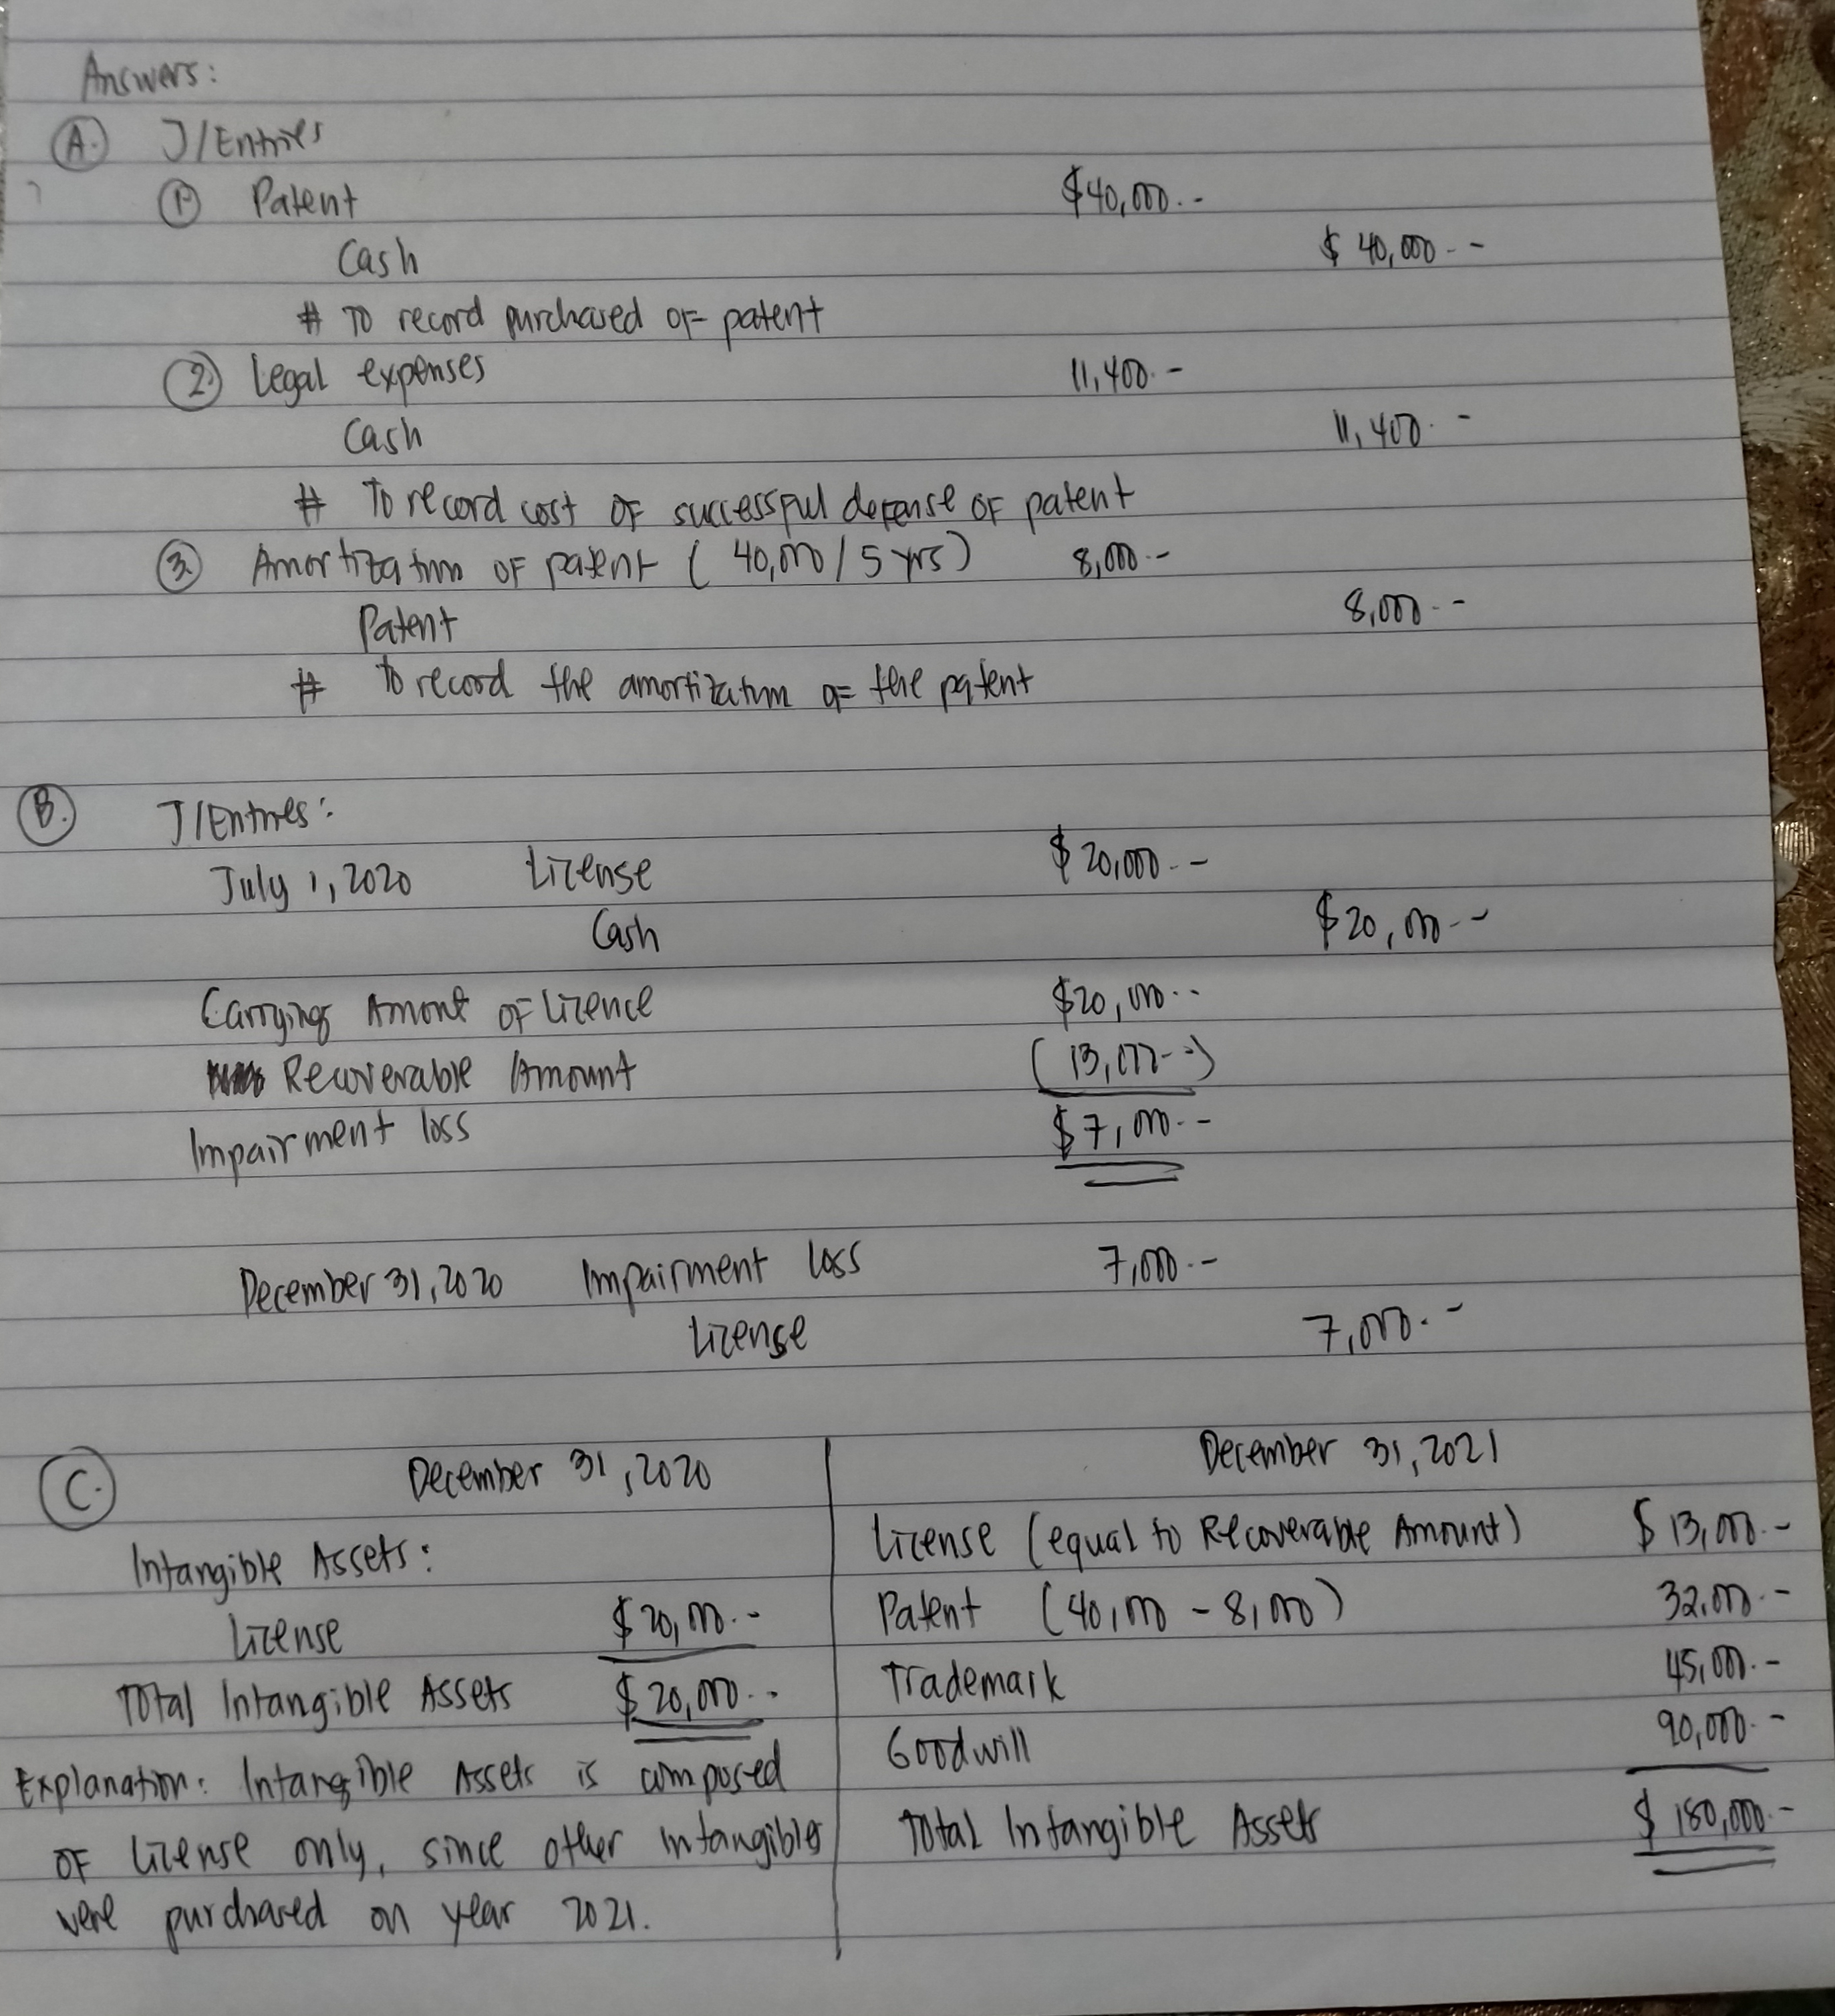 Answers:
A. J/Entries
1. Patent $40,000.-
Cash $40,000.-
# To record purchased of patent
2. Legal expenses 11,400.-
Cash 11,400.-
# To record cost of successful defense of patent
3. Amortization of patent (40,000/5 yrs) 8,000.-
Patent 8,000.-
# To record the amortization of the patent
B. J/Entries:
July 1, 2020 License $20,000.-
Cash $20,000.-
Carrying Amont of licence $20,000.-
Recoverable Amount (13,000.-)
Impairment loss $7,000.-
December 31, 2020 Impairment loss 7,000.-
License 7,000.-
C. December 31, 2020
Intangible Assets:
License $20,000.-
Total Intangible Assets $20,000.-
Explanation: Intangible Assets is composed
of license only, since other intangibles
were purchased on year 2021.
December 31, 2021
License (equal to Recoverable Amount) $13,000.-
Patent (40,000 - 8,000) 32,000.-
Trademark 45,000.-
Goodwill 90,000.-
Total Intangible Assets $180,000.-